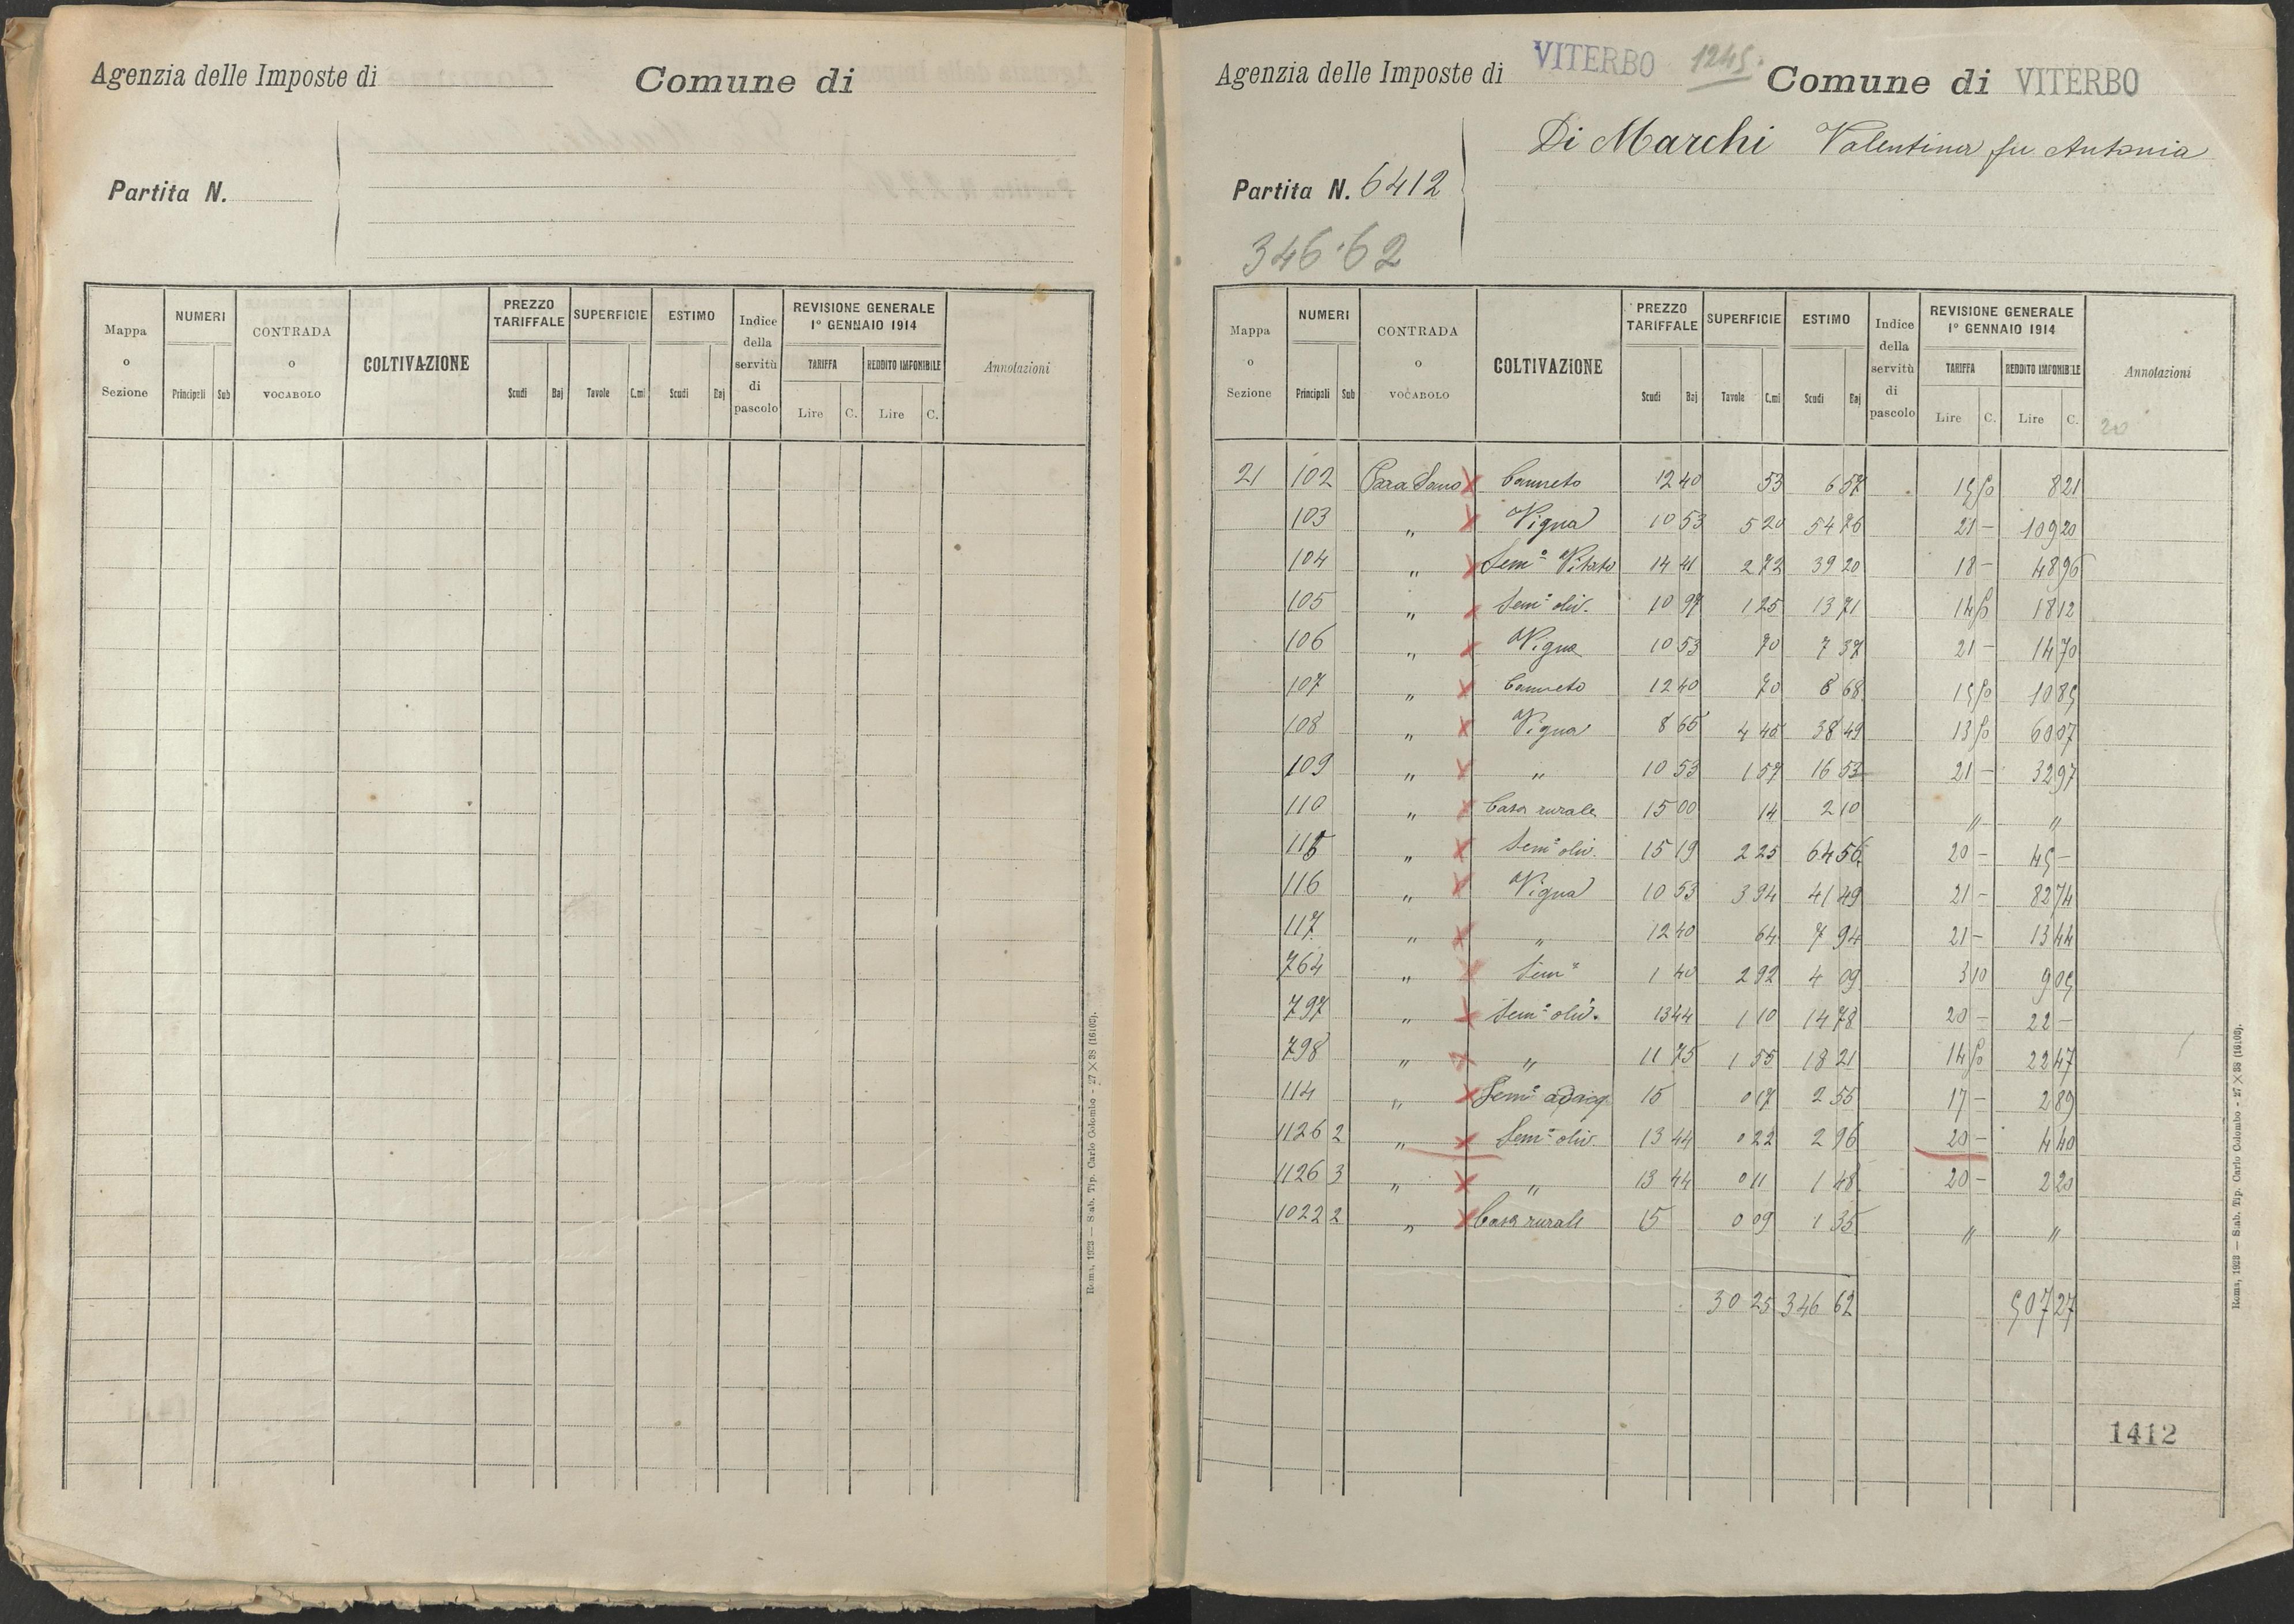 Agenzia delle Imposte di
Comune di
Partita N.
Mappa o Sezione
NUMERI
Principali Sub
CONTRADA o VOCABOLO
COLTIVAZIONE
PREZZO TARIFFALE
Scudi Baj
SUPERFICIE
Tavole C.mi
ESTIMO
Scudi Baj
Indice della servitù di pascolo
REVISIONE GENERALE
1º GENNAIO 1914
TARIFFA REDDITO IMPONIBILE
Lire C. Lire C.
Annotazioni
Roma, 1923 — Stab. Tip. Carlo Colombo - 27 × 38 (16102).
Agenzia delle Imposte di VITERBO 1245. Comune di VITERBO
Di Marchi Valentina fu Antonia
Partita N. 6412
346.62
Mappa o Sezione
NUMERI
Principali Sub
CONTRADA o VOCABOLO
COLTIVAZIONE
PREZZO TARIFFALE
Scudi Baj
SUPERFICIE
Tavole C.mi
ESTIMO
Scudi Baj
Indice della servitù di pascolo
REVISIONE GENERALE
1º GENNAIO 1914
TARIFFA REDDITO IMPONIBILE
Lire C. Lire C.
Annotazioni
20
21 102 x Canneto 12 40 53 6 57 15 50 8 21
103 " x Vigna 10 53 5 20 54 76 21 – 109 20
104 " x Semº Vitato 14 41 2 72 39 20 18 – 48 96
105 " x Semº oliv. 10 97 1 25 13 71 14 50 18 12
106 " x Vigna 10 53 70 7 37 21 – 14 70
107 " x Canneto 12 40 70 8 68 15 50 10 85
108 " x Vigna 8 65 4 45 38 49 13 50 60 07
109 " x " 10 53 1 57 16 53 21 – 32 97
110 " x Casa rurale 15 00 14 2 10 " "
115 " x Semº oliv. 15 19 2 25 64 56 20 – 45 –
116 " x Vigna 10 53 3 94 41 49 21 – 82 74
117 " x " 12 40 64 7 94 21 – 13 44
764 " x Semº 1 40 2 92 4 09 3 10 9 05
797 " x Semº oliv. 13 44 1 10 14 78 20 – 22 –
798 " x " 11 75 1 55 18 21 14 50 22 47
114 " x Semº adacq 15 0 17 2 55 17 – 2 89
1126 2 " x Semº oliv. 13 44 0 22 2 96 20 – 4 40
1126 3 " x " 13 44 0 11 1 48 20 – 2 20
1022 2 " x Casa rurale 15 0 09 1 35 " "
30 25 346 62 507 27
1412
Roma, 1923 — Stab. Tip. Carlo Colombo - 27 × 38 (16102).